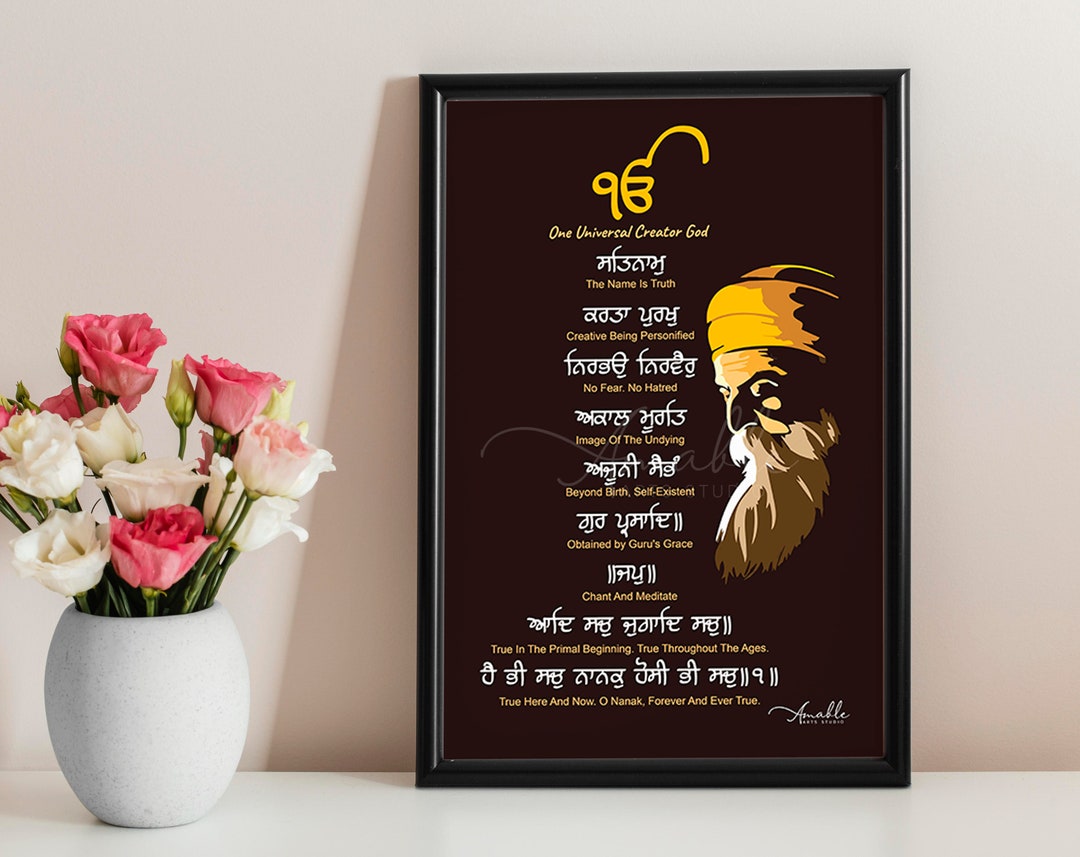 ੴ
One Universal Creator God
ਸਤਿਨਾਮੁ
The Name Is Truth
ਕਰਤਾ ਪੁਰਖੁ
Creative Being Personified
ਨਿਰਭਉ ਨਿਰਵੈਰੁ
No Fear. No Hatred
ਅਕਾਲ ਮੂਰਤਿ
Image Of The Undying
ਅਜੂਨੀ ਸੈਭੰ
Beyond Birth, Self-Existent
ਗੁਰ ਪ੍ਰਸਾਦਿ॥
Obtained by Guru's Grace
॥ਜਪੁ॥
Chant And Meditate
ਆਦਿ ਸਚੁ ਜੁਗਾਦਿ ਸਚੁ॥
True In The Primal Beginning. True Throughout The Ages.
ਹੈ ਭੀ ਸਚੁ ਨਾਨਕੁ ਹੋਸੀ ਭੀ ਸਚੁ॥੧॥
True Here And Now. O Nanak, Forever And Ever True.
Amable
ARTS STUDIO